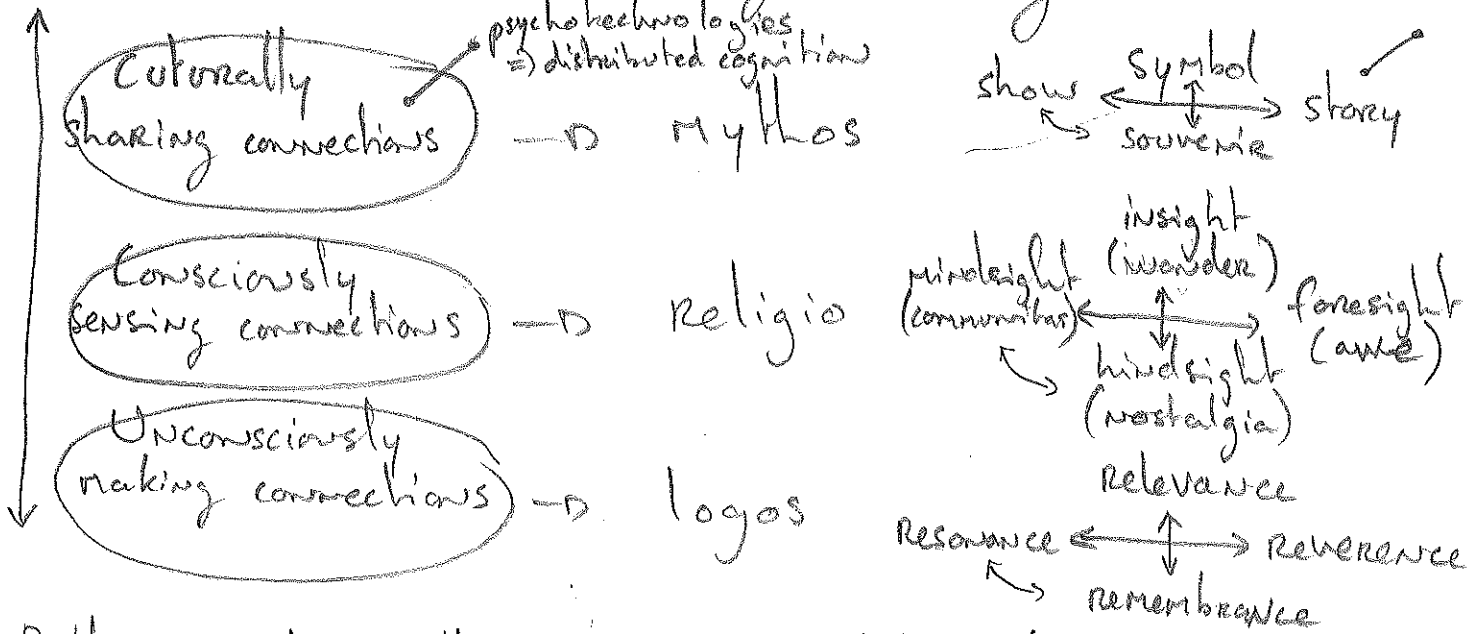 psychotechnologies
=) distributed cognition
Culturally
sharing connections → Mythos
show symbol story
souvenir
Consciously
sensing connections → Religio
insight
(wonder)
mindsight
(communitas)
foresight
(awe)
hindsight
(nostalgia)
Unconsciously
making connections → logos
Relevance
Resonance Reverence
Remembrance